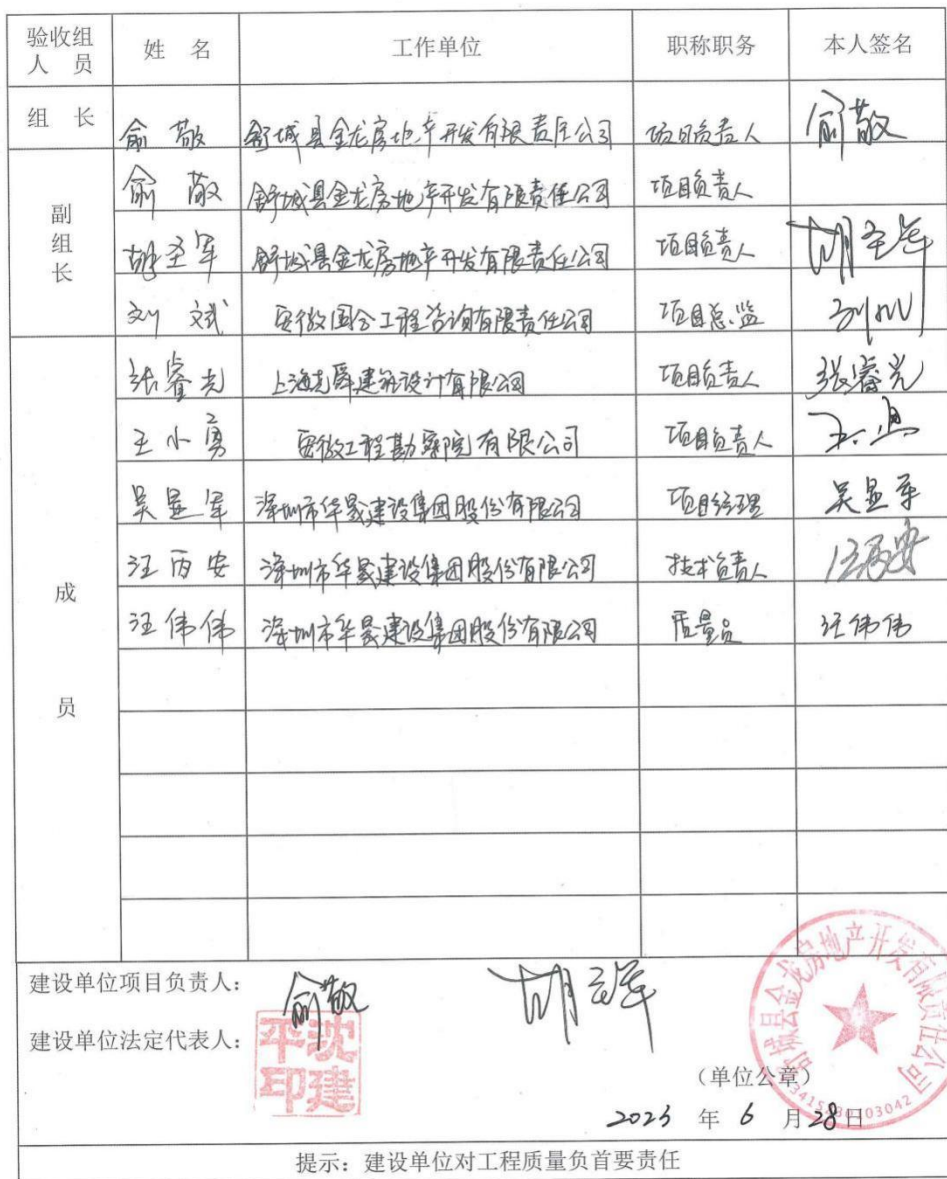 验收组人 员 姓 名 工作单位 职称职务 本人签名
组 长 俞敬 舒城县金龙房地产开发有限责任公司 项目负责人 俞敬
副组长 俞敬 舒城县金龙房地产开发有限责任公司 项目负责人
胡圣军 舒城县金龙房地产开发有限责任公司 项目负责人 胡圣军
刘斌 安徽国合工程咨询有限责任公司 项目总监
成员 张睿光 上海尧舜建筑设计有限公司 项目负责人 张睿光
王小勇 安徽工程勘察院有限公司 项目负责人
吴显军 深圳市华晟建设集团股份有限公司 项目经理 吴显军
汪丙安 深圳市华晟建设集团股份有限公司 技术负责人 汪丙安
汪伟伟 深圳市华晟建设集团股份有限公司 质量员 汪伟伟
建设单位项目负责人: 俞敬 胡圣军
建设单位法定代表人: 沈建平印
舒城县金龙房地产开发有限责任公司
(单位公章)
2023 年 6 月 28 日
提示: 建设单位对工程质量负首要责任